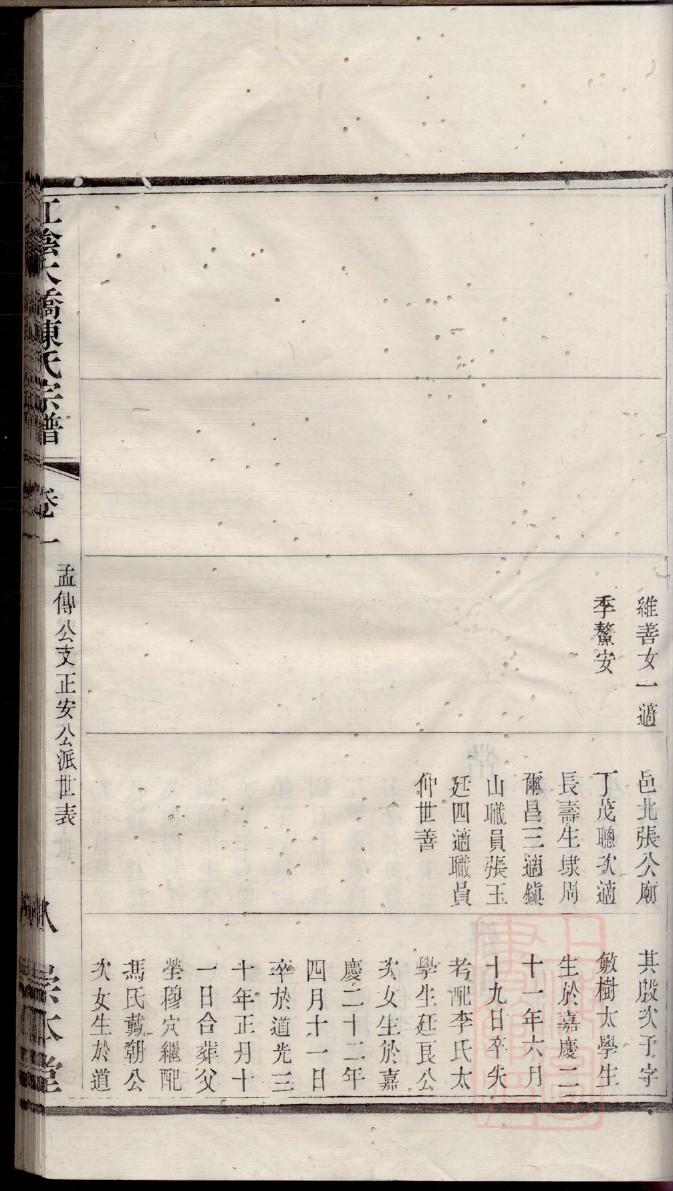 維善女一適
季鰲安
邑北張公廟
丁茂聰次適
長壽生球周
爾昌三適鎮
山職員張玉
廷四適職員
仲世善
其殷次子字
敏樹太學生
生於嘉慶二
十一年六月
十九日卒失
考配李氏太
學生廷良公
次女生於嘉
慶二十二年
四月十一日
卒於道光三
十年正月十
一日合葬父
塋穆穴繼配
馮氏戴朝公
次女生於道
江陰大橋陳氏宗譜
卷一
孟傳公支正安公派世表
八
崇本堂